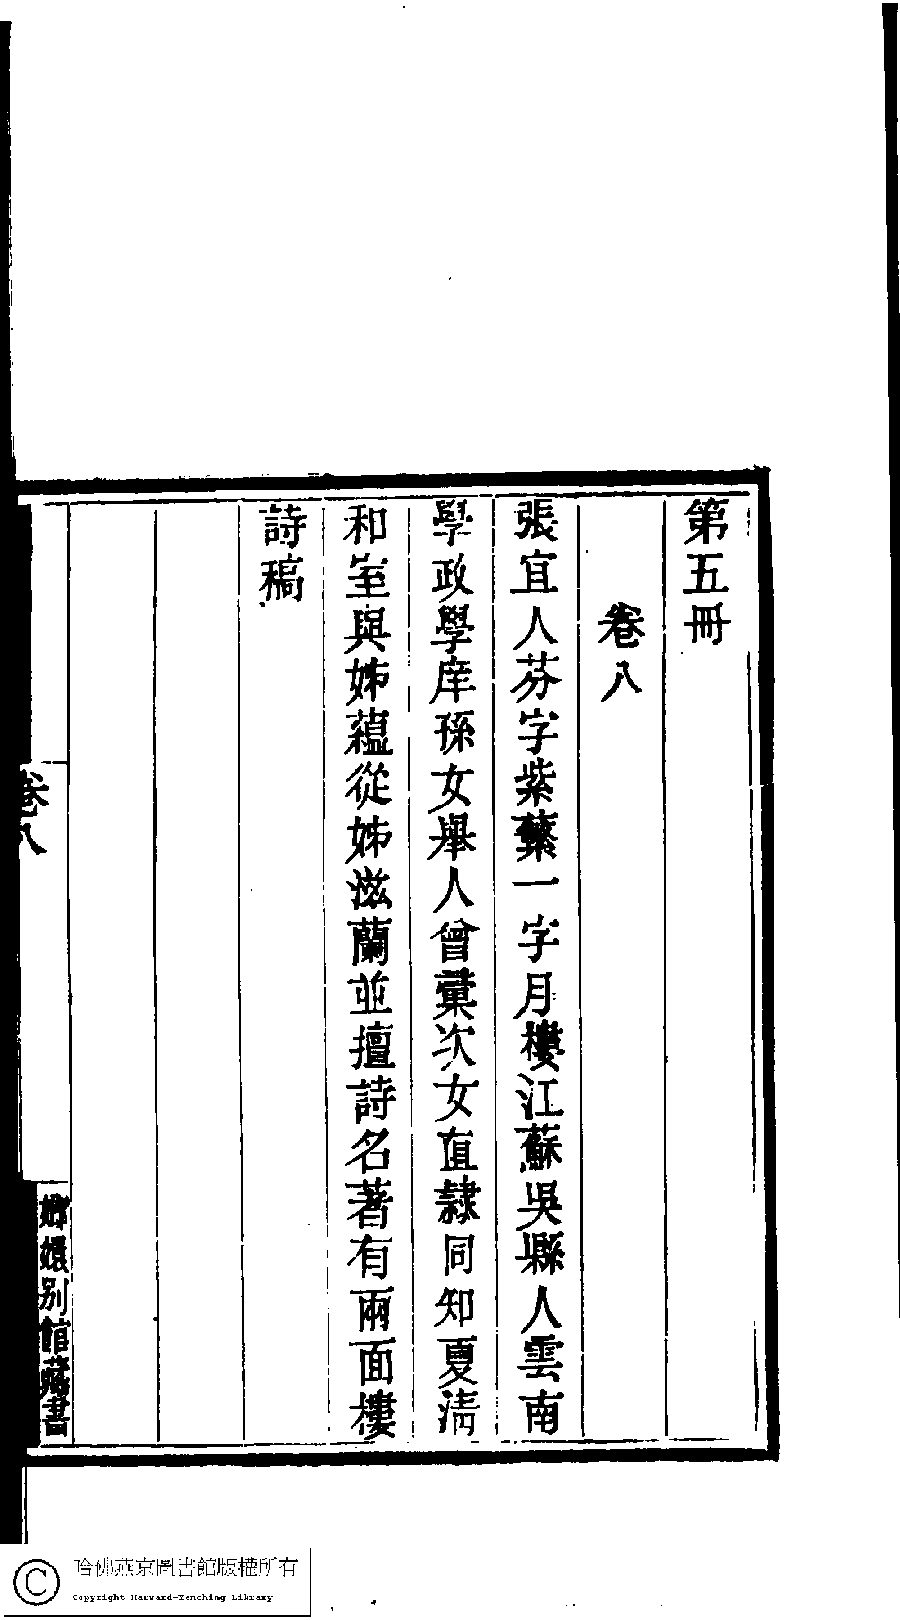 第五冊
卷八
張宜人芬字紫蘩一字月樓江蘇吳縣人雲南
學政學庠孫女舉人曾彙次女直隸同知夏清
和室與姊蘊從姊滋蘭並擅詩名著有兩面樓
詩稿
卷八
嫏嬛別館藏書
哈佛燕京圖書館版權所有
Copyright Harvard-Yenching Library